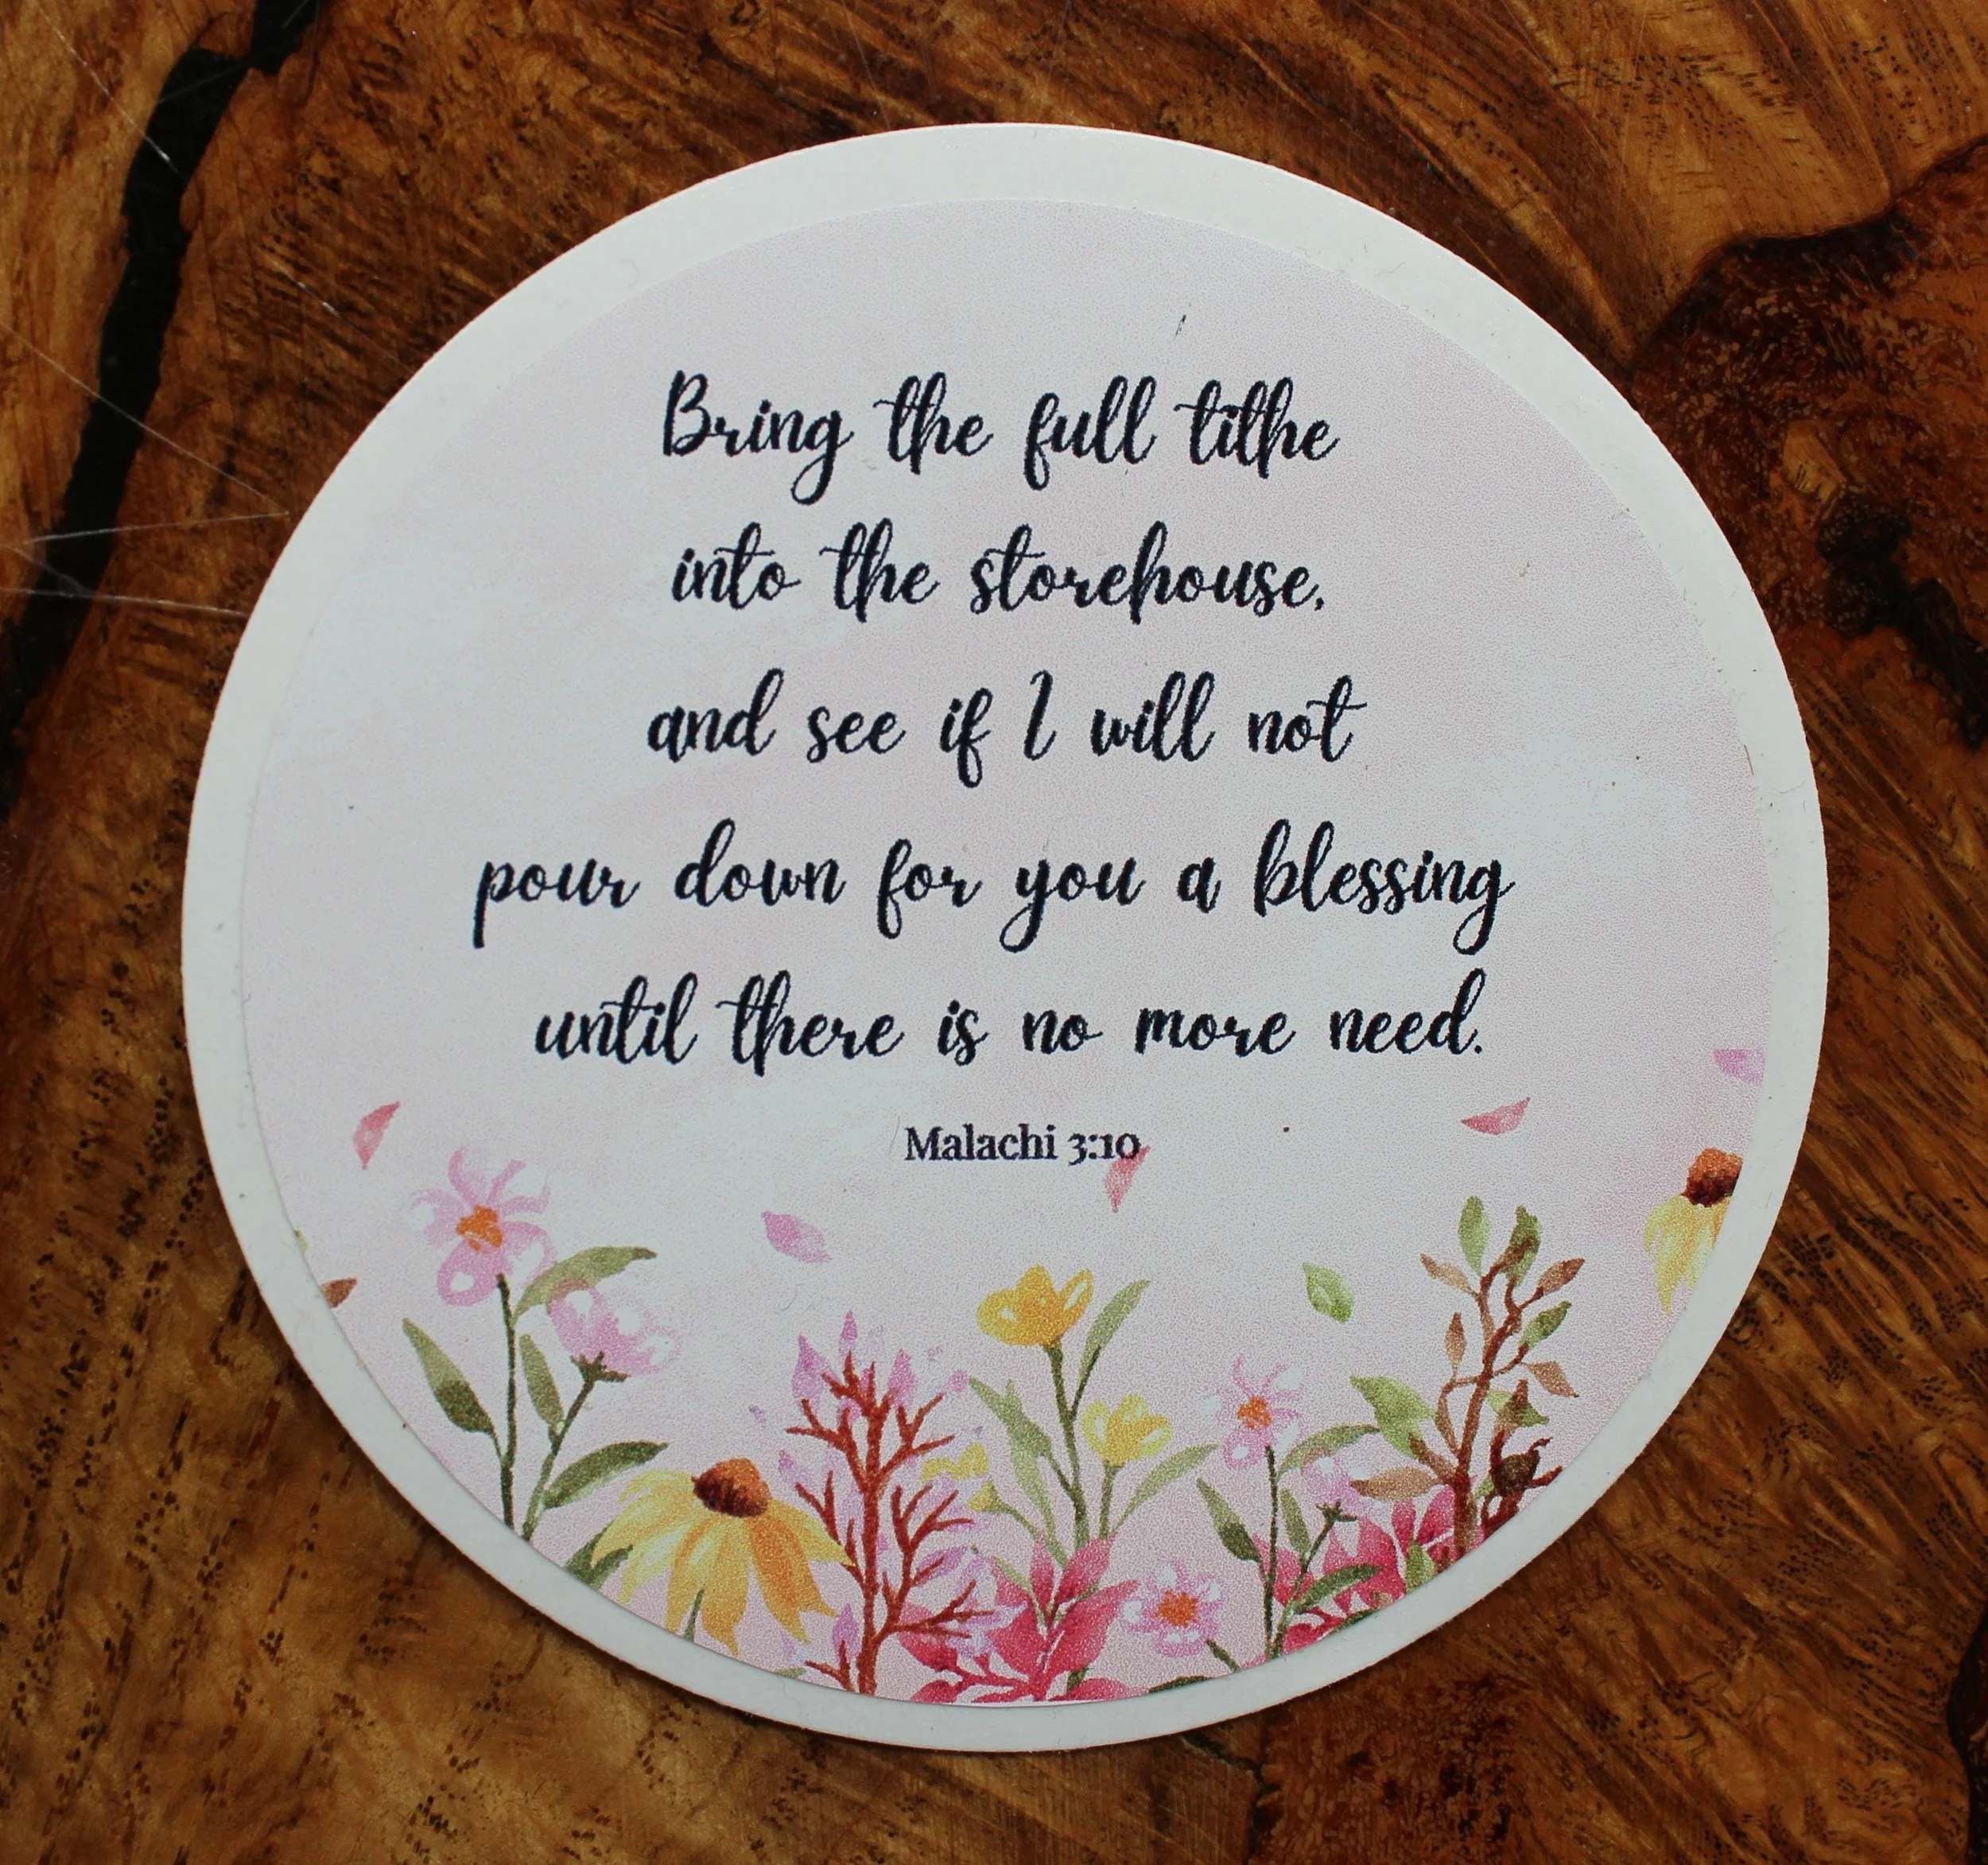 Bring the full tithe
into the storehouse,
and see if I will not
pour down for you a blessing
until there is no more need.
Malachi 3:10